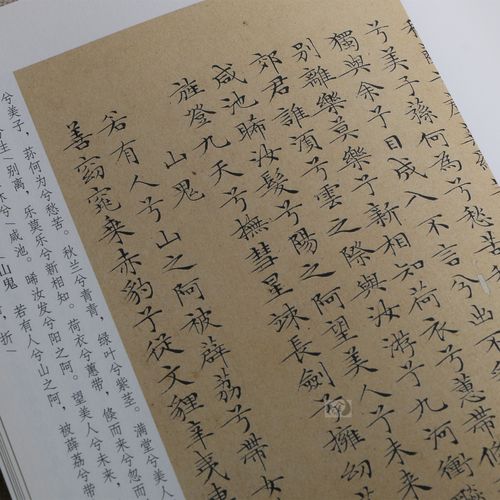 兮美子蓀何為兮愁苦
獨與余兮目成入不言兮出不
別離樂莫樂兮新相知荷衣兮蕙帶倏
郊君誰須兮雲之際與汝游兮九河衝
咸池晞汝髮兮陽之阿望美人兮未來
旌登九天兮撫彗星竦長劍兮擁幼
山鬼
若有人兮山之阿被薜荔兮帶女
善窈窕乘赤豹兮從文貍辛夷車
兮美子，荪何为兮愁苦。秋兰兮青青，绿叶兮紫茎。满堂兮美人
别离，乐莫乐兮新相知。荷衣兮蕙带，倏而来兮忽而
咸池。晞汝发兮阳之阿。望美人兮未来，
山鬼 若有人兮山之阿，被薜荔兮带